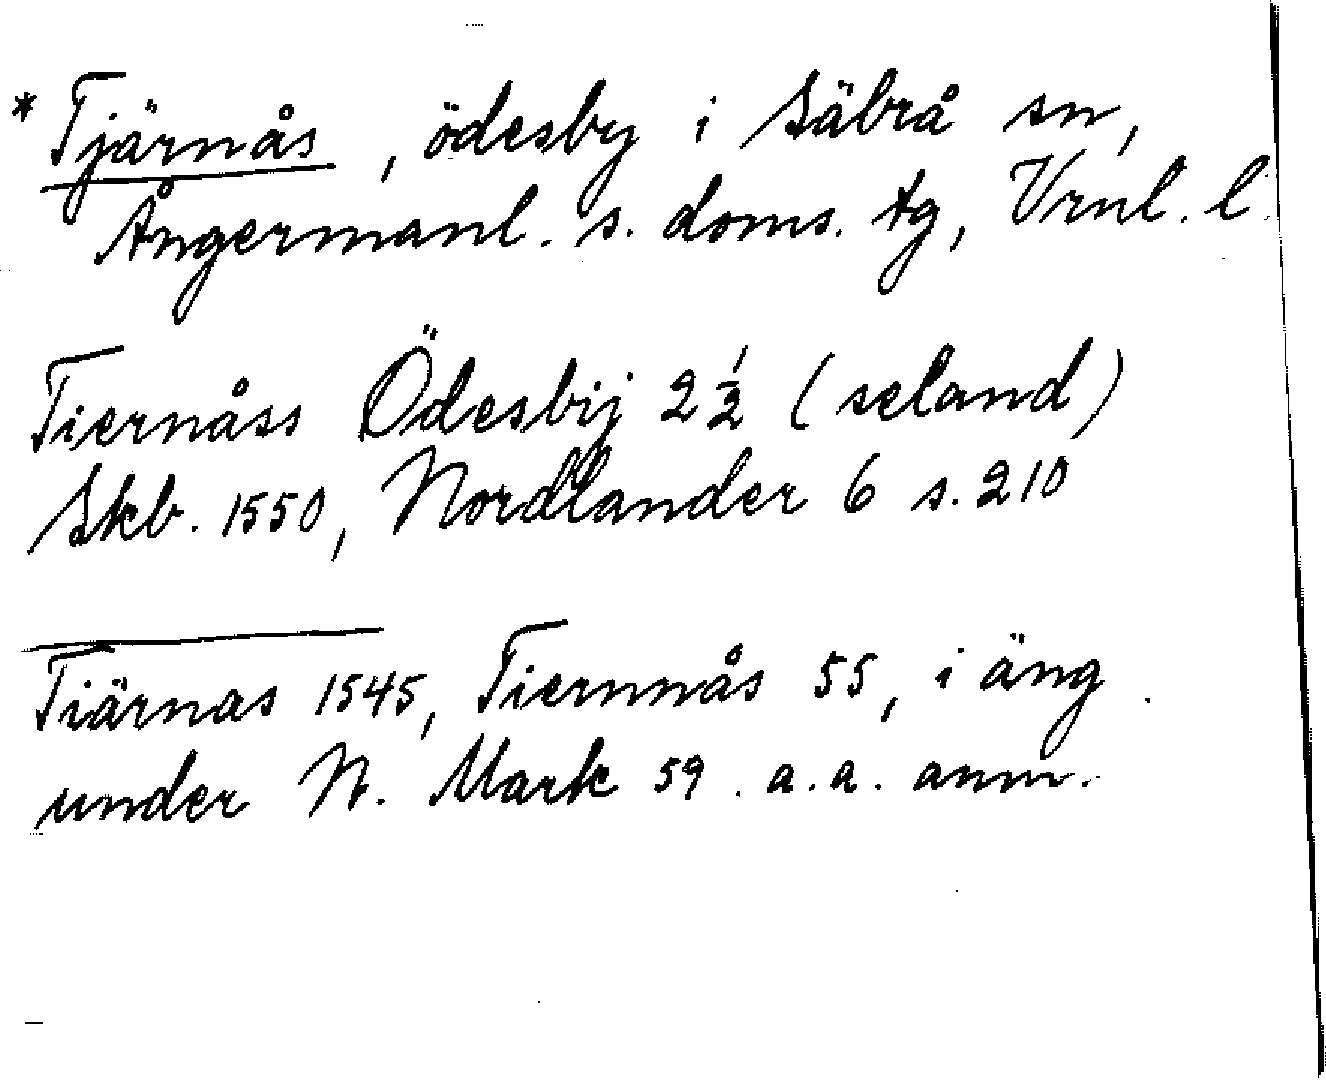 * Tjärnås, ödesby i Säbrå sn,
Ångermanl. s. doms. tg, Vrnl. l.
Tiernåss Ödesbij 2 1/2 (seland)
Skb. 1550, Nordlander 6 s. 210
Tiärnas 1545, Tiernnås 55, i äng
under N. Mark 59. a.a. anm.